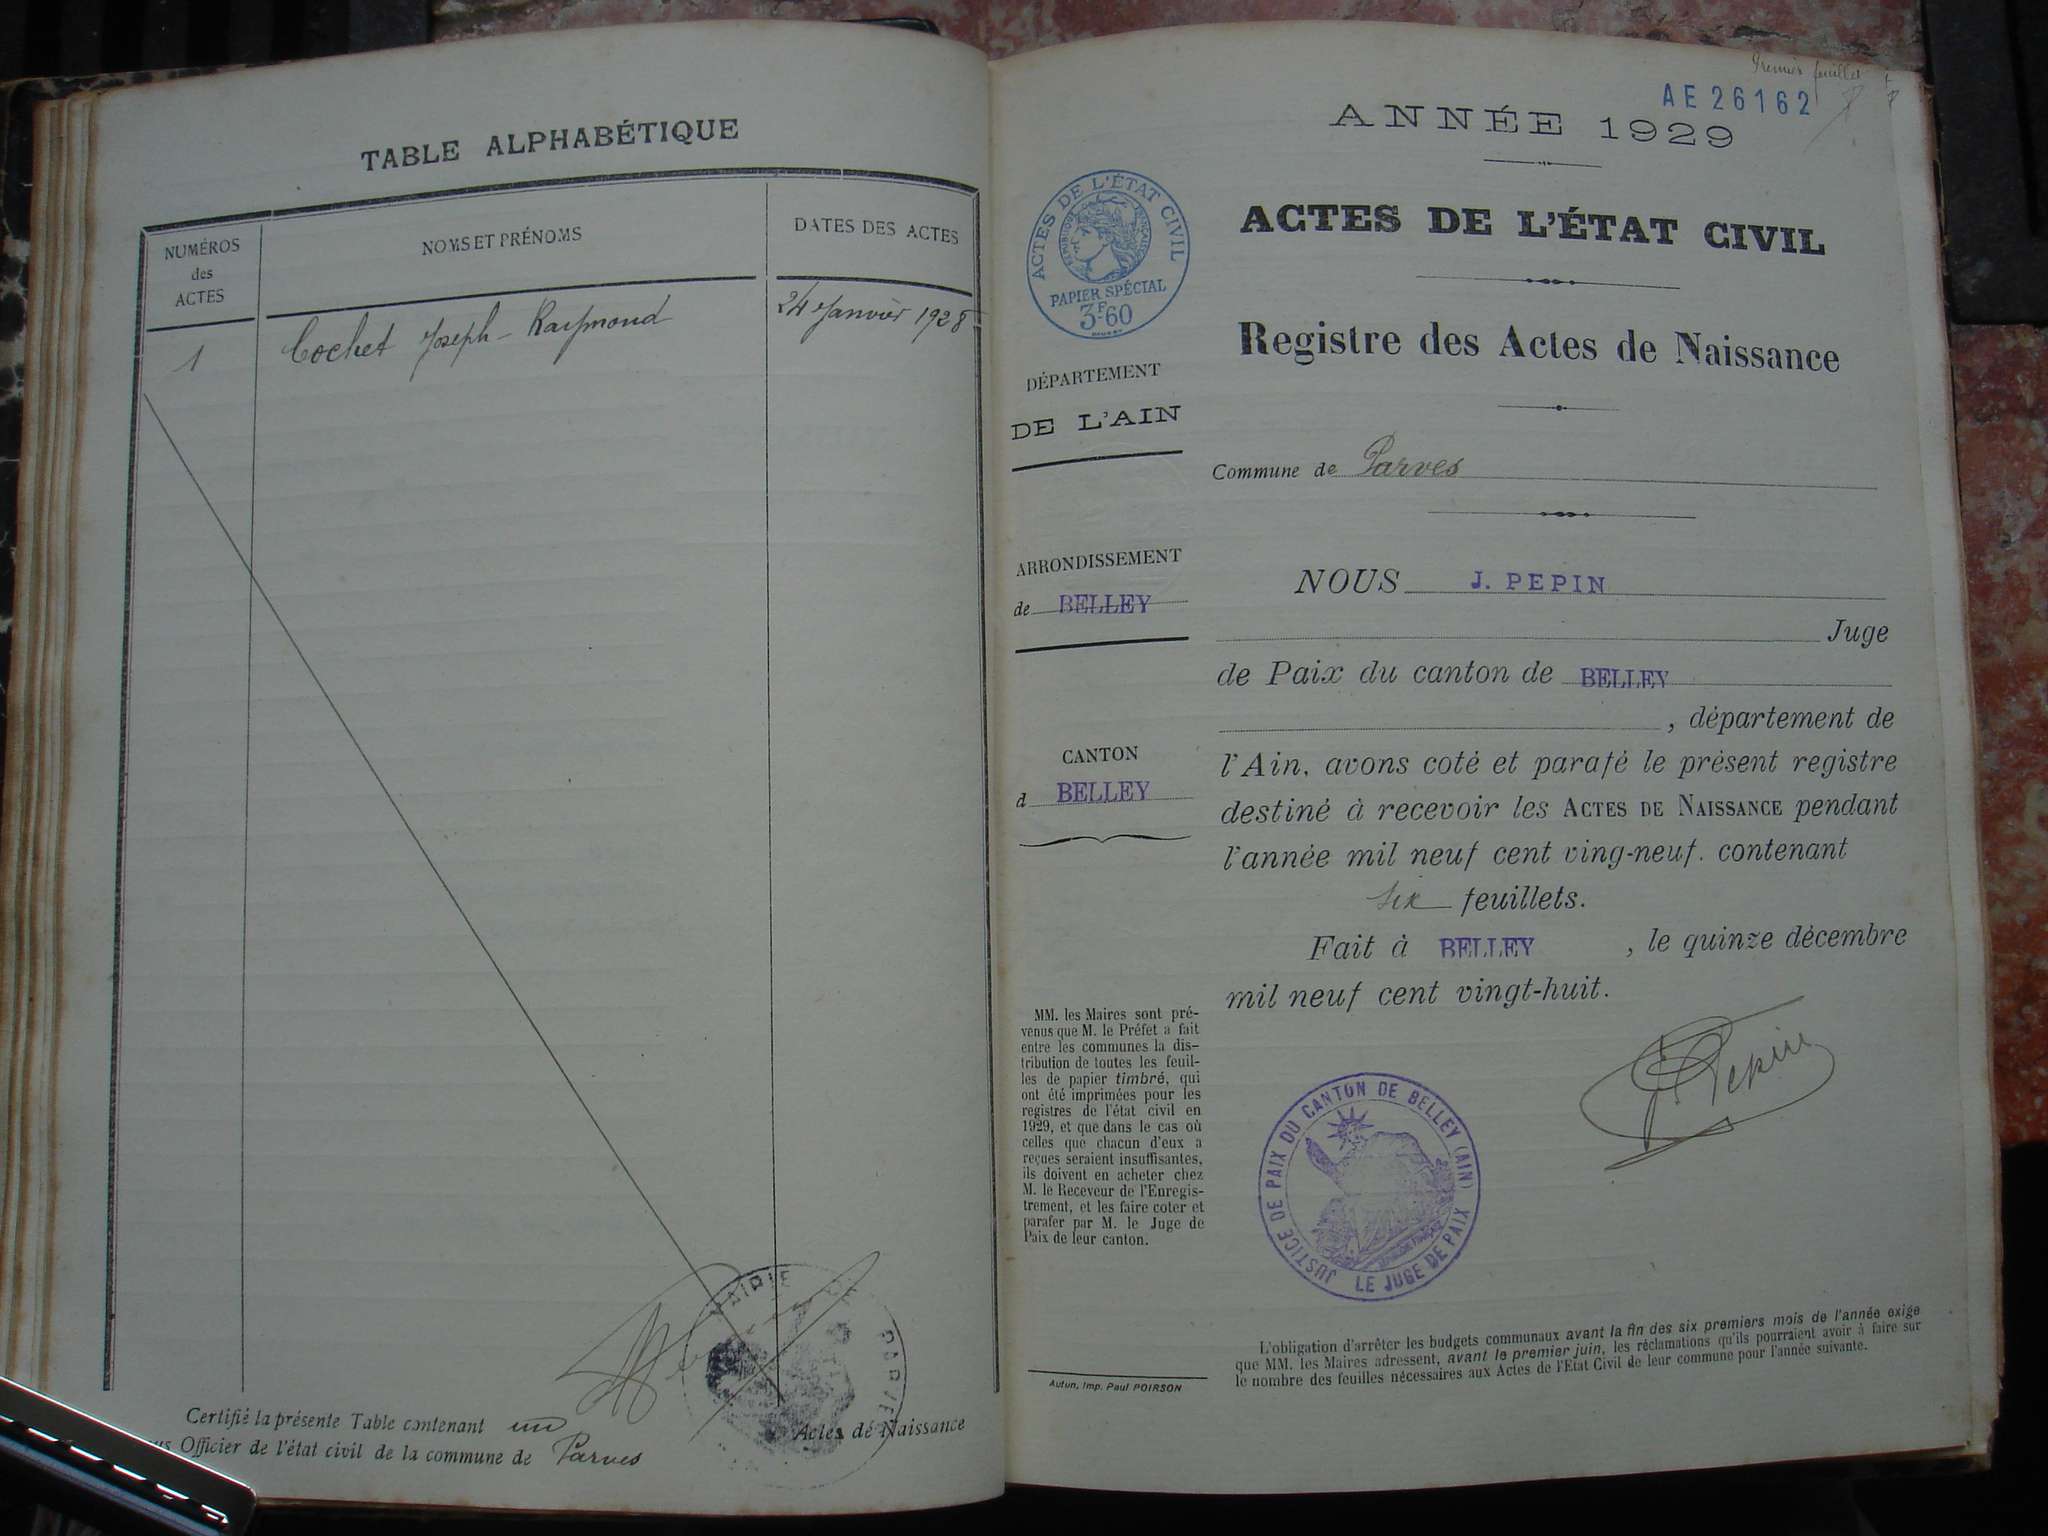 TABLE ALPHABÉTIQUE
NUMÉROS
des
ACTES
NOMS ET PRÉNOMS
DATES DES ACTES
1
Cochet Joseph-Raymond
24 Janvier 1928
Certifié la présente Table contenant un
Actes de Naissance
Officier de l'état civil de la commune de Parves
MAIRIE DE PARVES
Premier feuillet
AE 26162
ANNÉE 1929
ACTES DE L'ÉTAT CIVIL
RÉPUBLIQUE FRANÇAISE
PAPIER SPÉCIAL
3F60
ACTES DE L'ÉTAT CIVIL
Registre des Actes de Naissance
DÉPARTEMENT
DE L'AIN
Commune de Parves
ARRONDISSEMENT
de BELLEY
CANTON
d BELLEY
NOUS J. PEPIN
Juge
de Paix du canton de BELLEY
, département de
l'Ain, avons coté et parafé le présent registre
destiné à recevoir les ACTES DE NAISSANCE pendant
l'année mil neuf cent ving-neuf. contenant
six feuillets.
Fait à BELLEY , le quinze décembre
mil neuf cent vingt-huit.
J. Pepin
MM. les Maires sont pré-
venus que M. le Préfet a fait
entre les communes la dis-
tribution de toutes les feuil-
les de papier timbré, qui
ont été imprimées pour les
registres de l'état civil en
1929, et que dans le cas où
celles que chacun d'eux a
reçues seraient insuffisantes,
ils doivent en acheter chez
M. le Receveur de l'Enregis-
trement, et les faire coter et
parafer par M. le Juge de
Paix de leur canton.
JUSTICE DE PAIX DU CANTON DE BELLEY (AIN)
LE JUGE DE PAIX
Autun, Imp. Paul POIRSON
L'obligation d'arrêter les budgets communaux avant la fin des six premiers mois de l'année exige
que MM. les Maires adressent, avant le premier juin, les réclamations qu'ils pourraient avoir à faire sur
le nombre des feuilles nécessaires aux Actes de l'Etat Civil de leur commune pour l'année suivante.